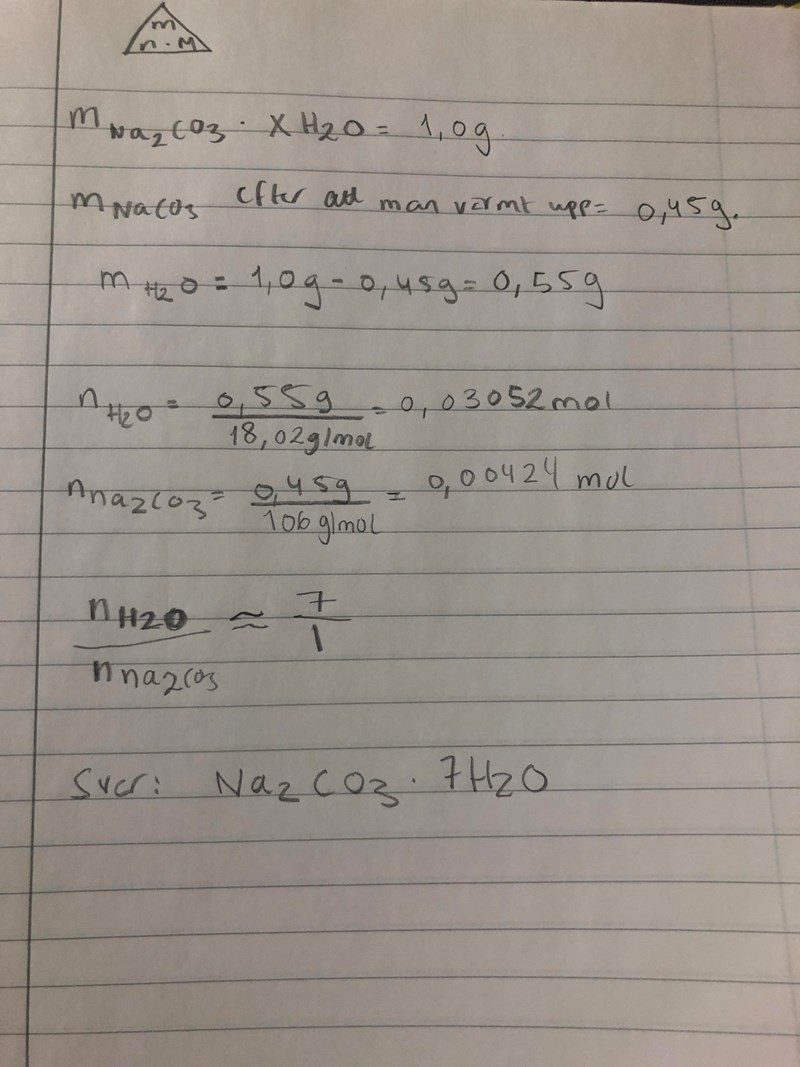 m
n · M
m Na2CO3 · X H2O = 1,0g.
m NaCO3 efter att man värmt upp = 0,45g.
m H2O = 1,0g - 0,45g = 0,55g
n H2O = 0,55g / 18,02g/mol = 0,03052mol
n na2CO3 = 0,45g / 106g/mol = 0,00424 mol
n H2O / n na2CO3 ≈ 7 / 1
Svar: Na2CO3 · 7H2O